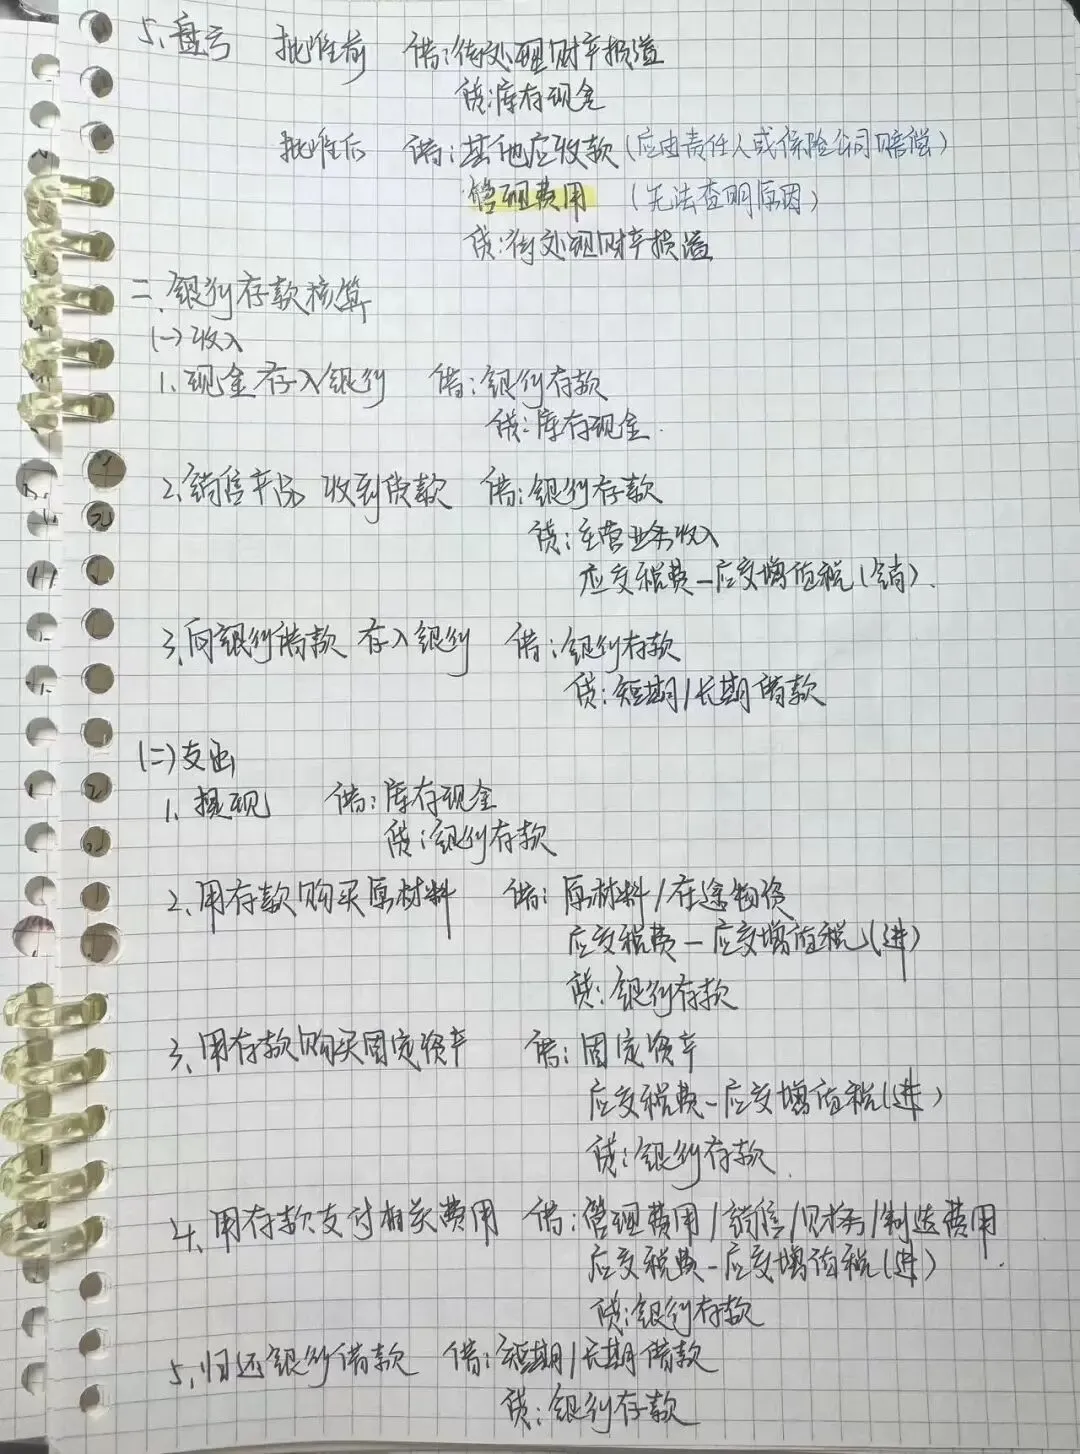 5、盘亏 批准前 借:待处理财产损溢
贷:库存现金
批准后 借:其他应收款(应由责任人或保险公司赔偿)
管理费用 (无法查明原因)
贷:待处理财产损溢
二、银行存款核算
(一)收入
1、现金存入银行 借:银行存款
贷:库存现金.
2、销售产品 收到货款 借:银行存款
贷:主营业务收入
应交税费-应交增值税(销).
3、向银行借款 存入银行 借:银行存款
贷:短期/长期借款
(二)支出
1、提现 借:库存现金
贷:银行存款
2、用存款购买原材料 借:原材料/在途物资
应交税费-应交增值税(进)
贷:银行存款
3、用存款购买固定资产 借:固定资产
应交税费-应交增值税(进)
贷:银行存款.
4、用存款支付相关费用 借:管理费用/销售/财务/制造费用
应交税费-应交增值税(进).
贷:银行存款
5、归还银行借款 借:短期/长期借款
贷:银行存款